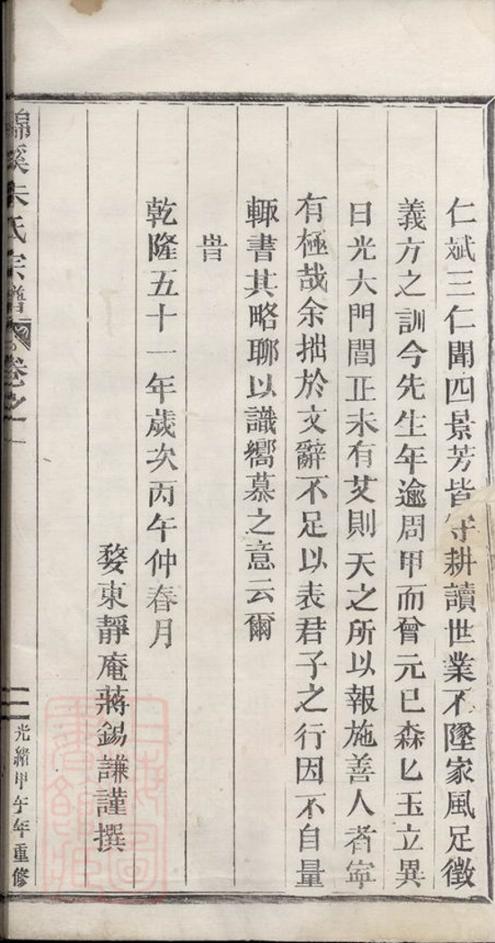 仁斌三仁聞四景芳皆守耕讀世業不墜家風足徵
義方之訓今先生年逾周甲而曾元已森匕玉立異
日光大門閭正未有艾則天之所以報施善人者寧
有極哉余拙於文辭不足以表君子之行因不自量
輙書其略聊以識嚮慕之意云爾
旹
乾隆五十一年歲次丙午仲春月
婺東靜庵蔣錫謙謹撰
錦溪朱氏宗譜 卷之一
二
光緒甲午年重修